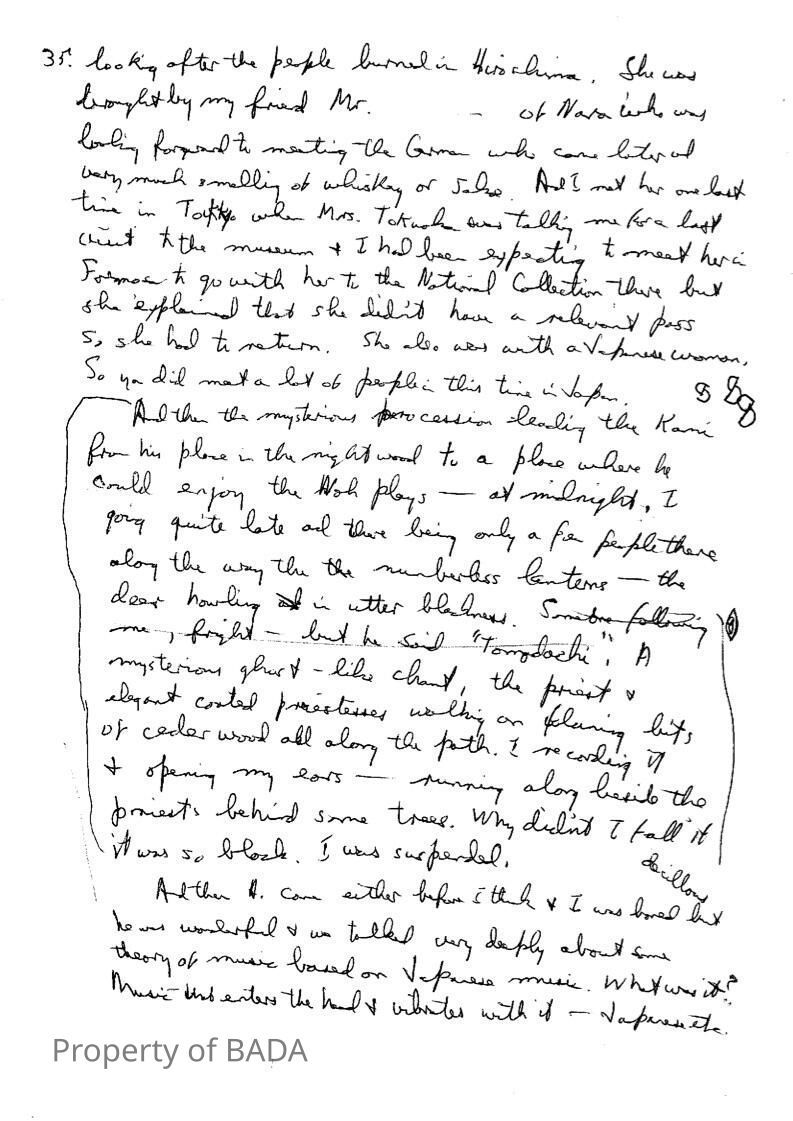 35. looking after the people burned in Hiroshima. She was
brought by my friend Mr. — of Nara who was
looking forward to meeting the German who came later
very much smelling of whiskey or sake. And I met her one last
time in Tokyo when Mrs. Tokuoka was talking me for a last
visit to the museum & I had been expecting to meet her in
Formosa to go with her to the National Collection there but
she explained that she didn't have a relevant pass
so she had to return. She also was with a Japanese woman.
So you did meet a lot of people in this time in Japan.
And then the mysterious procession leading the Kami
from his place in the night wood to a place where he
could enjoy the Noh plays — at midnight, I
going quite late and there being only a few people there
along the way the the numberless lanterns — the
deer howling in utter blackness. Someone following
me, fright — but he said "Tomodachi". A
mysterious ghost-like chant, the priest &
elegant coated priestesses walking on flaming bits
of cedar wood all along the path. I recording it
& opening my ears — running along beside the
priests behind some trees. Why didn't I fall it
it was so black. I was suspended.
And then A. came either before I think & I was bored but
he was wonderful & we talked very deeply about some
theory of music based on Japanese music. What was it?
Music that enters the head & vibrates with it — Japanese etc.
Property of BADA